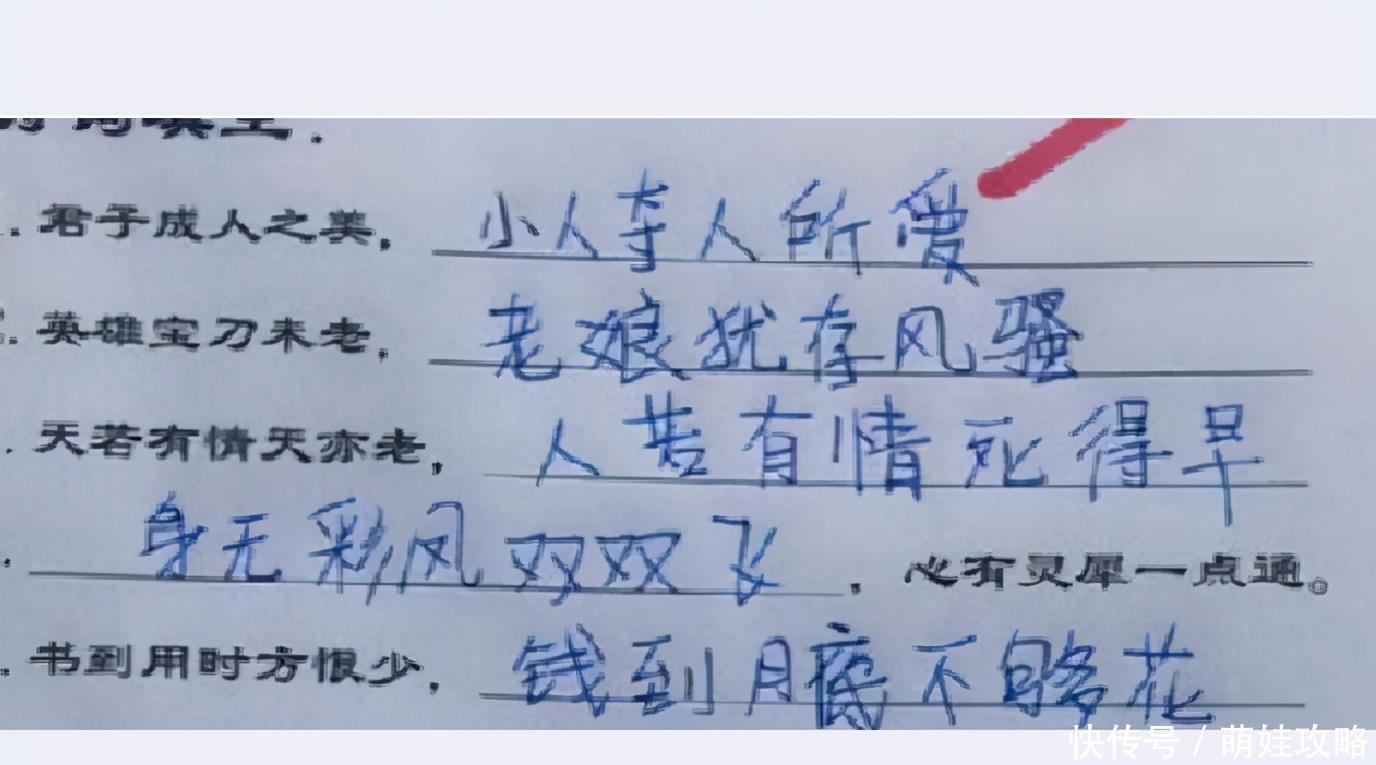 句填空.
君子成人之美, 小人夺人所爱
英雄宝刀未老, 老娘犹存风骚
天若有情天亦老, 人若有情死得早
身无彩凤双双飞, 心有灵犀一点通。
书到用时方恨少, 钱到月底不够花
快传号 / 萌娃攻略